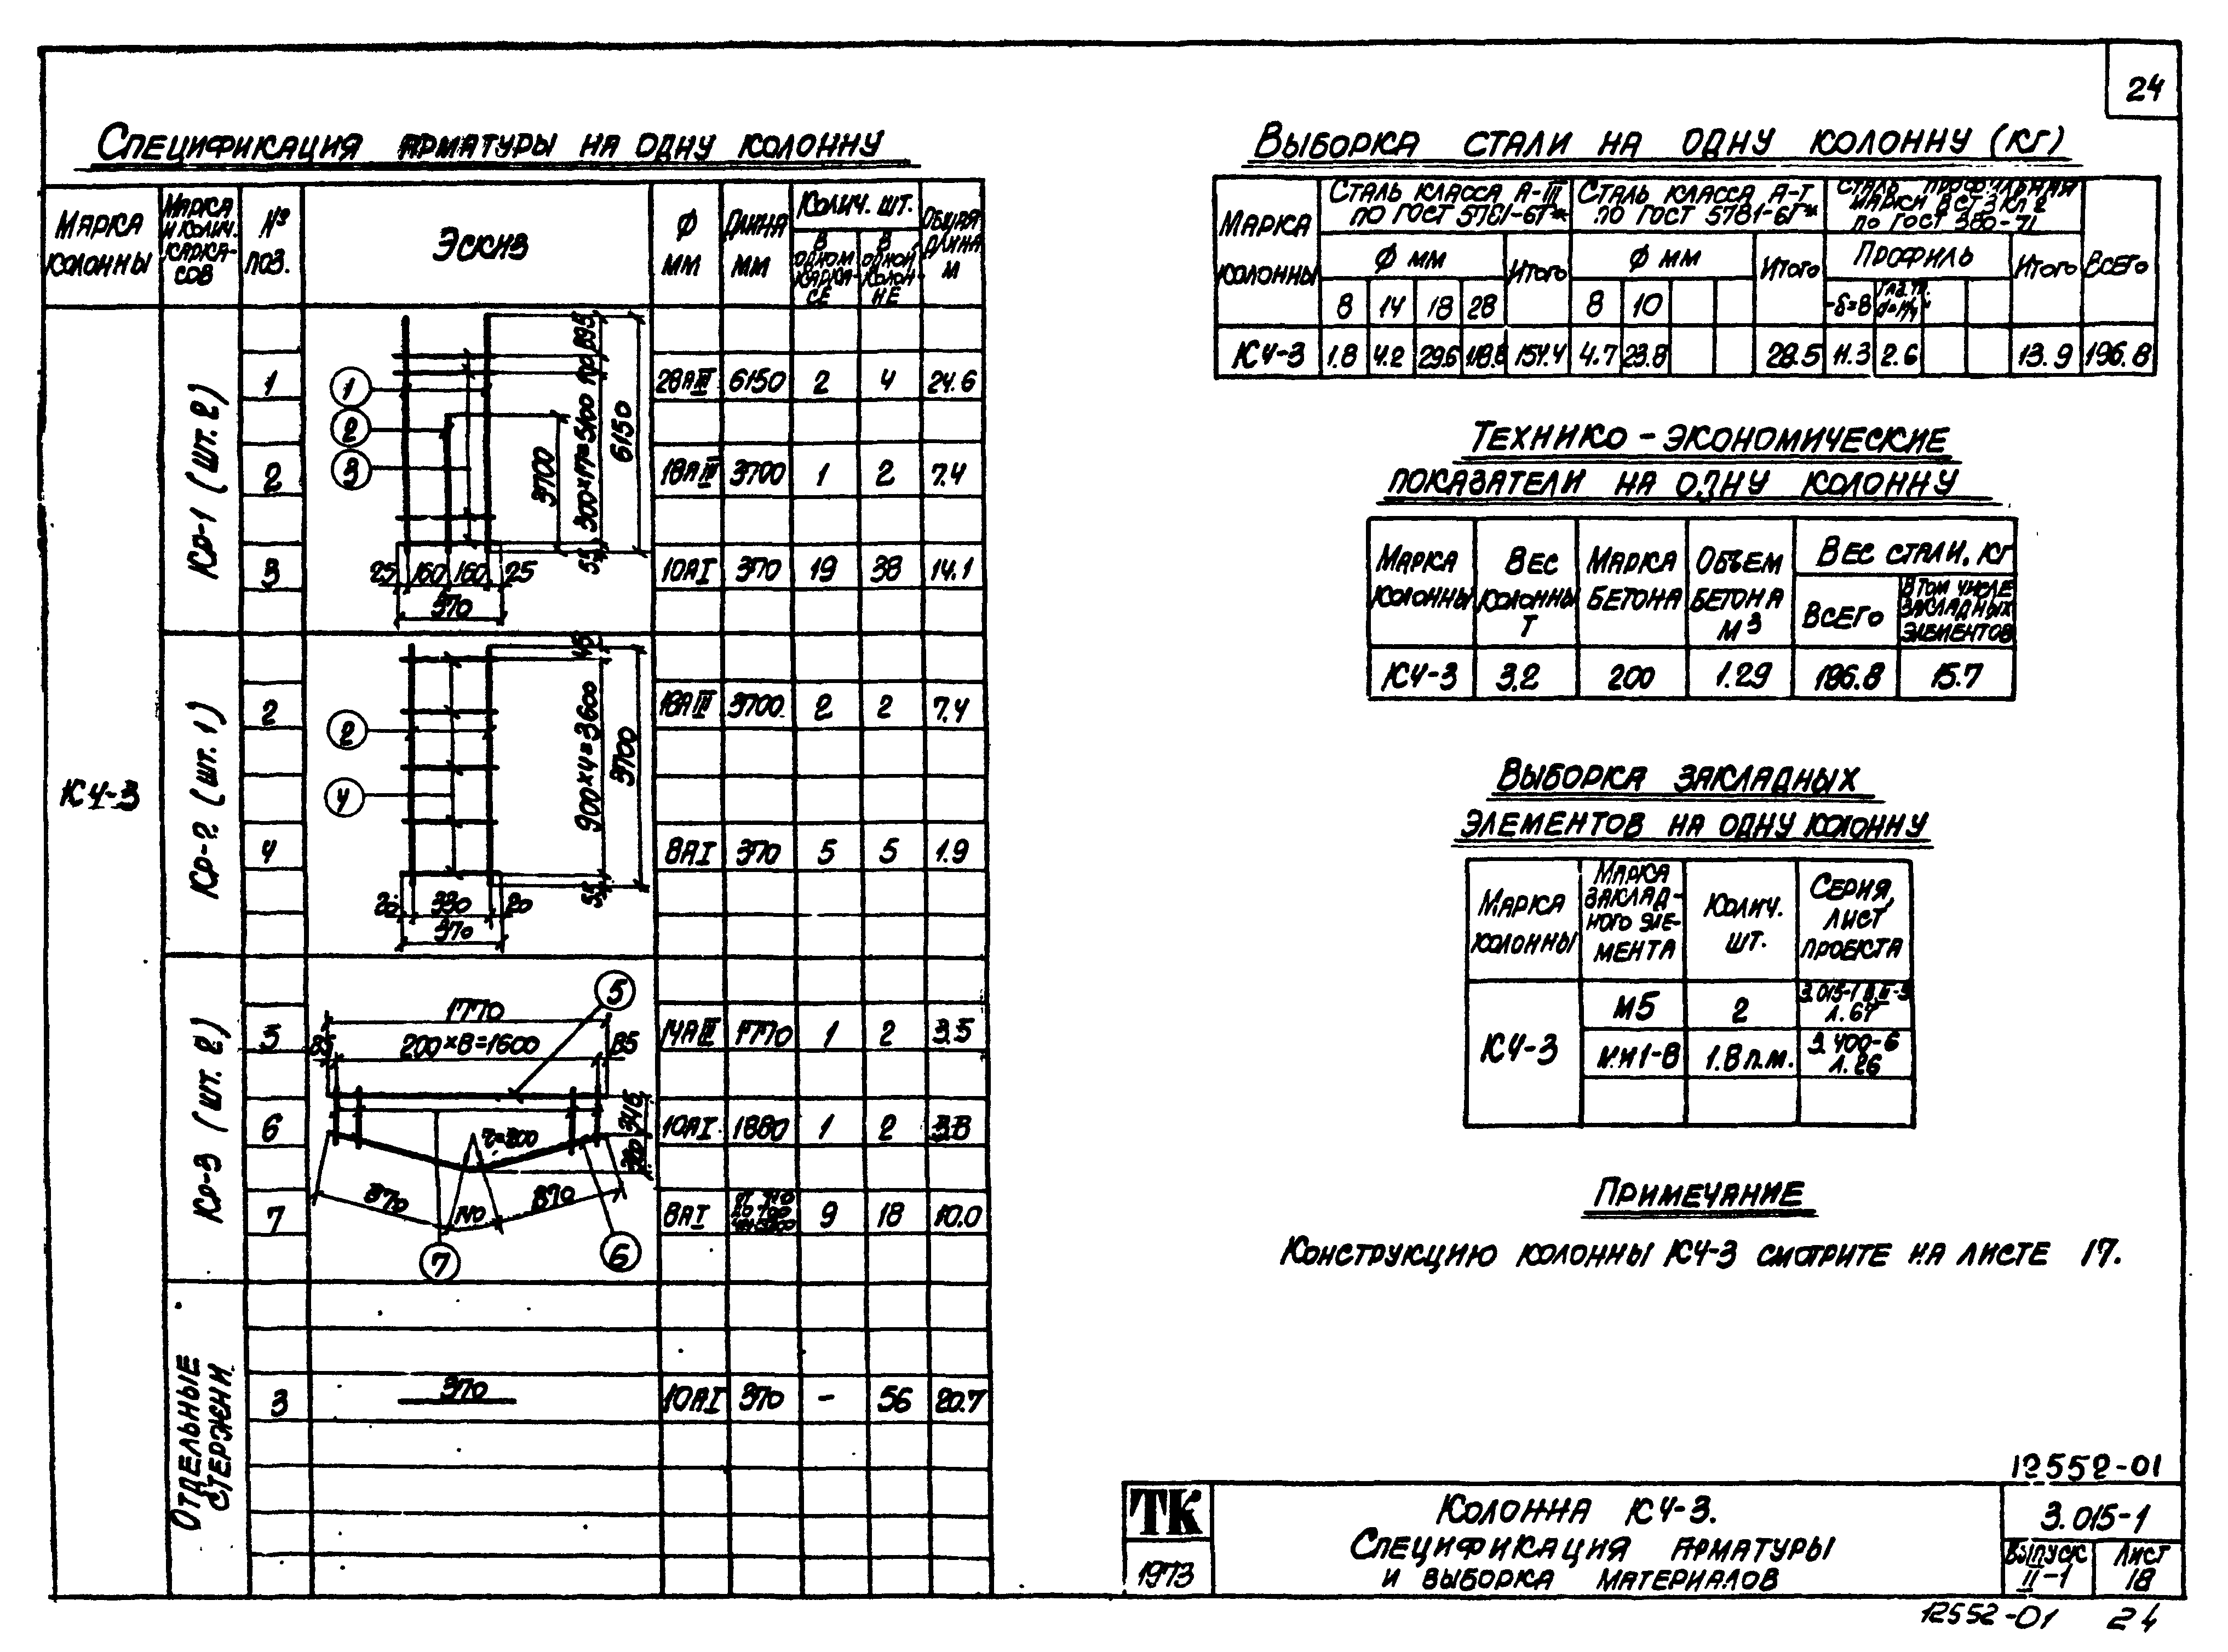 24
Спецификация арматуры на одну колонну
Марка колонны
Марка и колич. каркасов
№ поз.
Эскиз
Ф мм
Длина мм
Колич. шт.
в одном каркасе
в одной колонне
Общая длина м
К4-3
Кр-1 (шт. 2)
1 28АIII 6150 2 4 24.6
2 18АIII 3700 1 2 7.4
3 10АI 370 19 38 14.1
1
2
3
895
100
300×17=5100
55
6150
3700
25 160 160 25
370
Кр-2 (шт. 1)
2 18АIII 3700 2 2 7.4
4 8АI 370 5 5 1.9
2
4
45
900×4=3600
55
3700
20 330 20
370
Кр-3 (шт. 2)
5 14АIII 1770 1 2 3.5
6 10АI 1880 1 2 3.8
7 8АI 9 18 10.0
5
1770
85 200×8=1600 85
345
r=200
870 140 870
7
6
Отдельные стержни
3 370 10АI 370 – 56 20.7
Выборка стали на одну колонну (кг)
Марка колонны
Сталь класса А-III по ГОСТ 5781-61*
Сталь класса А-I по ГОСТ 5781-61*
Сталь профильная марки ВСт3кп2 по ГОСТ 380-71
Всего
Ф мм
Итого
Ф мм
Итого
Профиль
Итого
8 14 18 28
8 10
-δ=8
К4-3 1.8 4.2 29.6 118.8 154.4 4.7 23.8 28.5 11.3 2.6 13.9 196.8
Технико-экономические
показатели на одну колонну
Марка колонны
Вес колонны т
Марка бетона
Объем бетона м3
Вес стали, кг
Всего
в том числе закладных элементов
К4-3 3.2 200 1.29 196.8 15.7
Выборка закладных
элементов на одну колонну
Марка колонны
Марка закладного элемента
Колич. шт.
Серия, лист проекта
К4-3
М5 2 3.015-1 в.II-5 л. 67
1.8 п.м. 3.400-6 л. 26
Примечание
Конструкцию колонны К4-3 смотрите на листе 17.
12552-01
ТК
1973
Колонна К4-3.
Спецификация арматуры
и выборка материалов
3.015-1
Выпуск II-1
Лист 18
12552-01 24